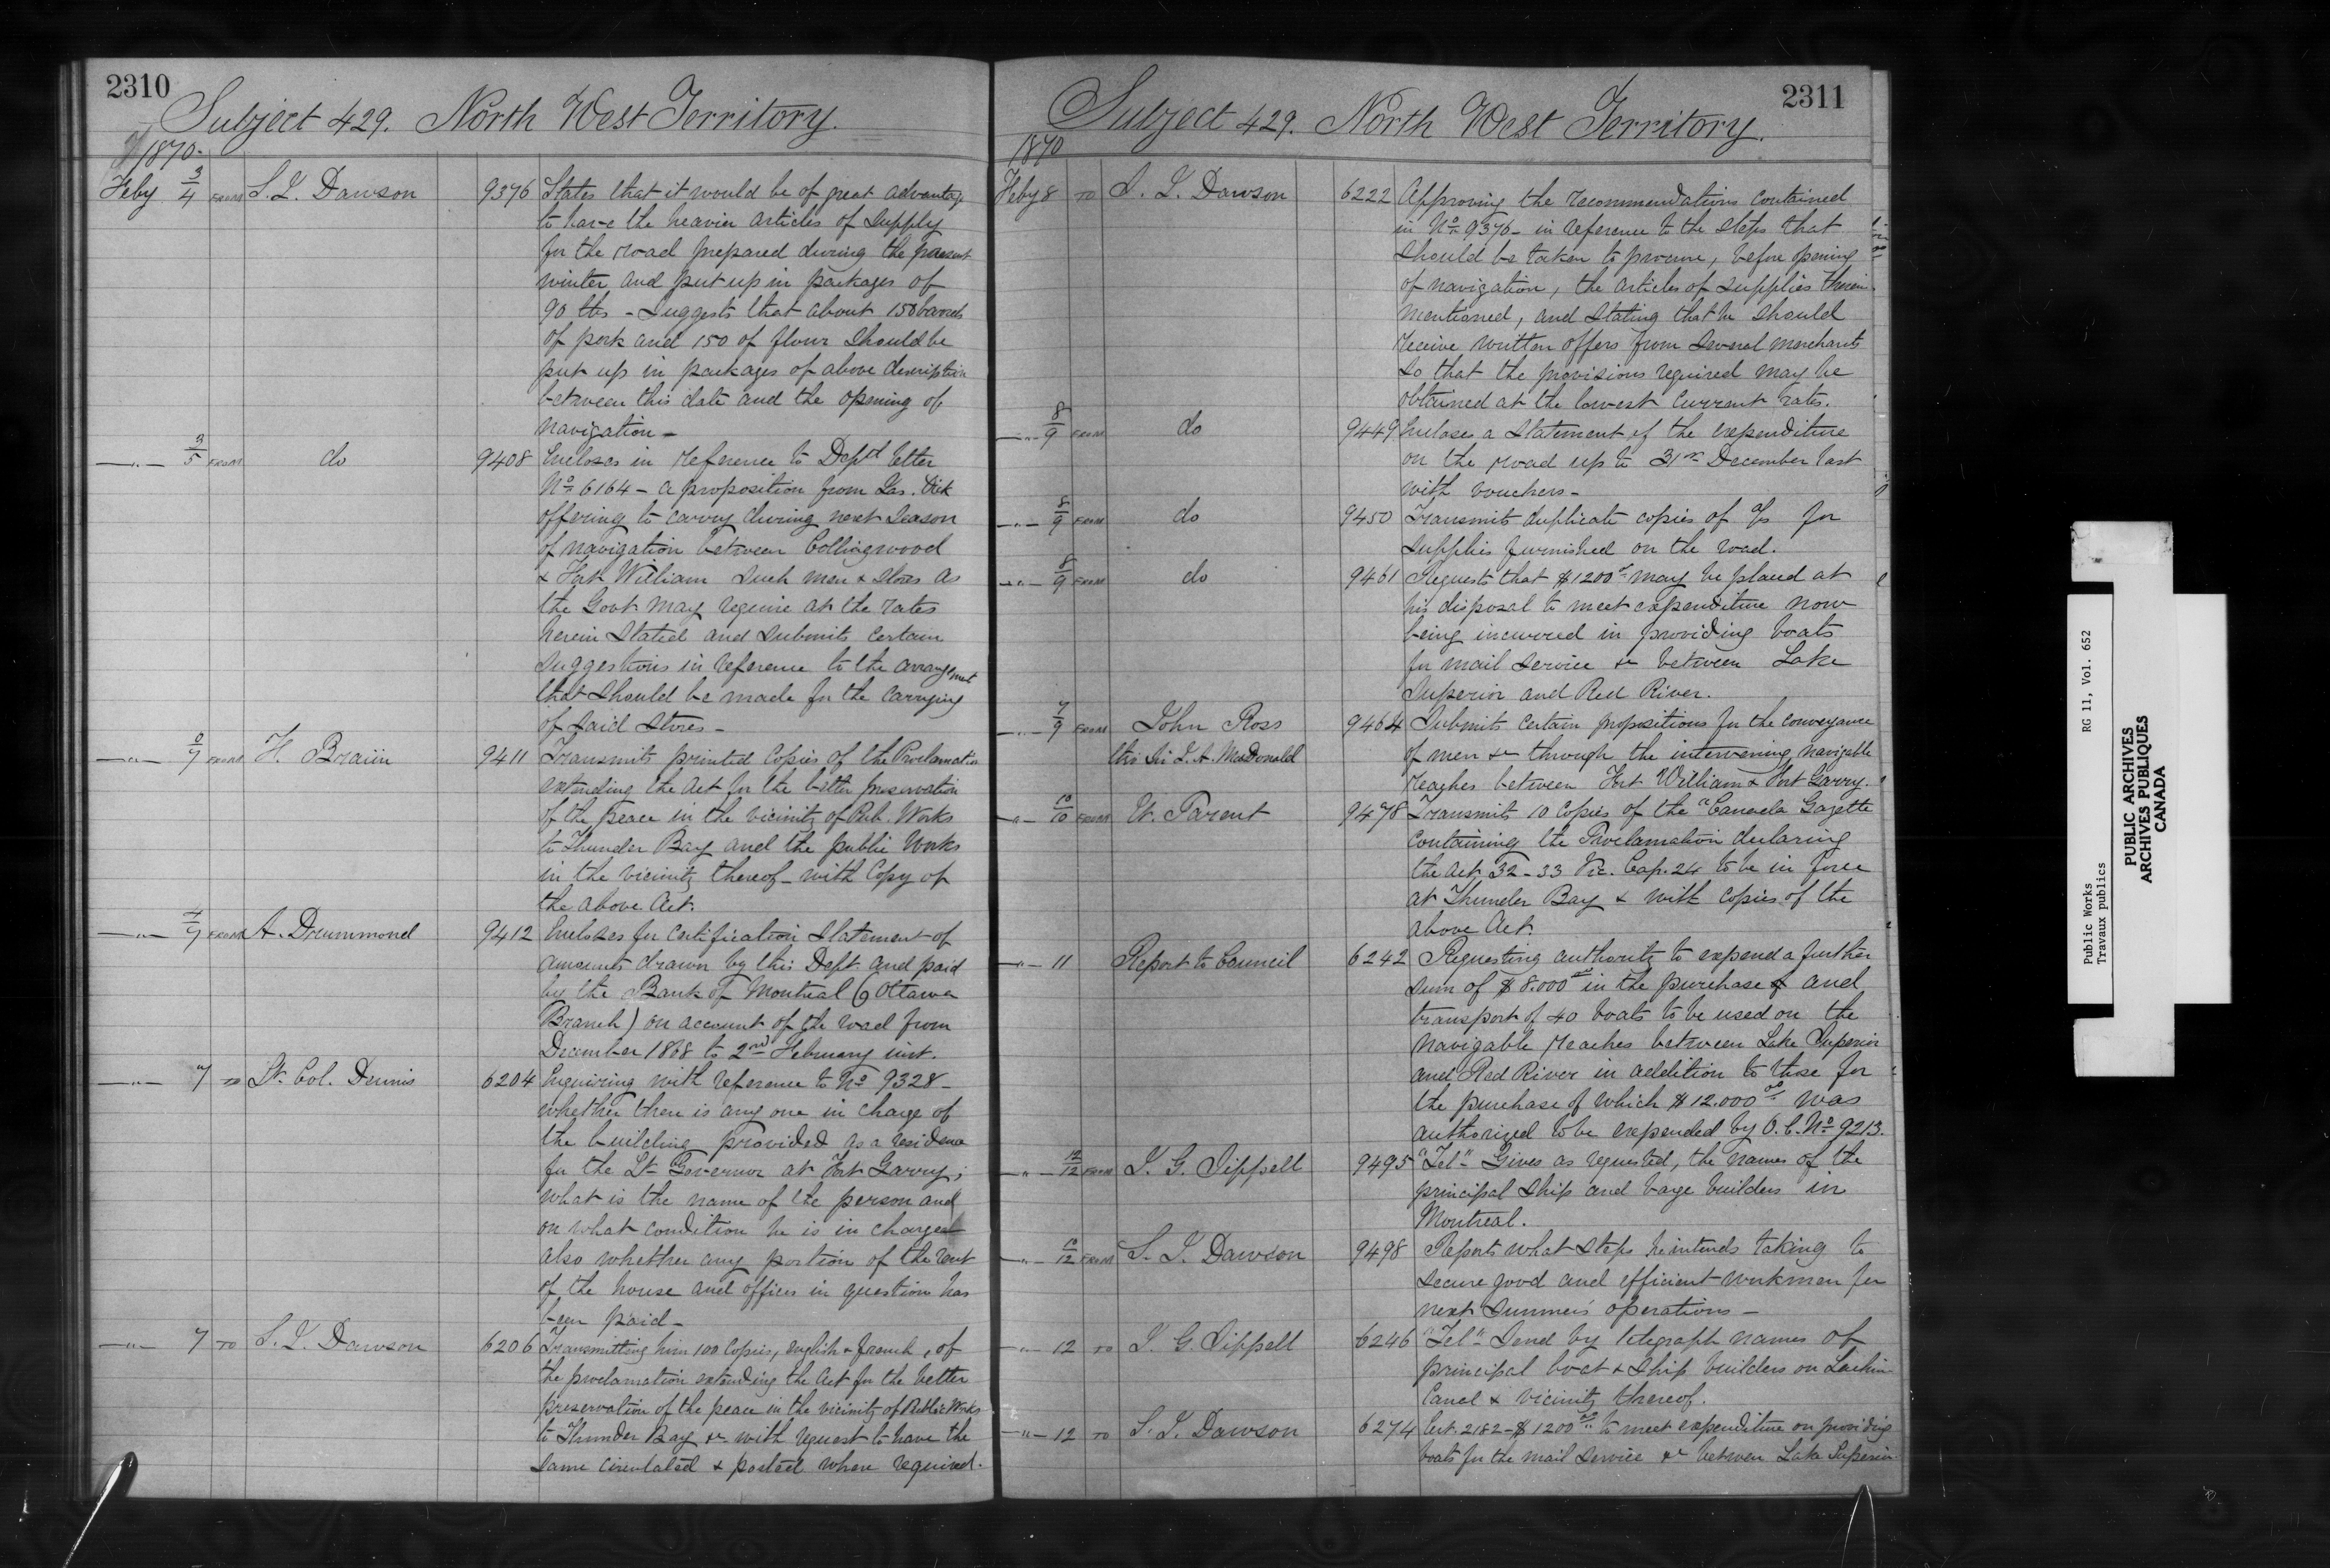 2310
Subject 429. North West Territory.
1870.
Feby 3/4 FROM S. J. Dawson 9376 States that it would be of great advantage
to have the heavier articles of supply
for the road prepared during the present
winter and put up in packages of
90 lbs - Suggests that about 150 barrels
of pork and 150 of flour should be
put up in packages of above description
between this date and the opening of
navigation -
—"— 3/5 FROM do 9408 Encloses in reference to Dept letter
No 6164 - a proposition from Jas. Dick
offering to carry during next season
of navigation between Collingwood
& Fort William such men & stores as
the Govt may require at the rates
herein stated and submits certain
suggestions in reference to the arrangement
that should be made for the carrying
of said stores -
—"— /7 FROM H. Braün 9411 Transmits printed copies of the Proclamation
extending the Act for the better preservation
of the peace in the vicinity of Pub. Works
to Thunder Bay and the public works
in the vicinity thereof - with Copy of
the above Act.
—"— 4/7 FROM A. Drummond 9412 Encloses for certification statement of
amounts drawn by this Dept. and paid
by the Bank of Montreal (Ottawa
Branch) on account of the road from
December 1868 to 2nd February inst.
—"— 7 TO Lt. Col. Dennis 6204 Enquiring with reference to No 9328 -
whether there is any one in charge of
the building provided as a residence
for the Lt Governor at Fort Garry;
what is the name of the person and
on what condition he is in charge
also whether any portion of the rent
of the house and offices in question has
been paid -
—"— 7 TO S. J. Dawson 6206 Transmitting him 100 Copies, english & french, of
the proclamation extending the Act for the better
preservation of the peace in the vicinity of Public Works
to Thunder Bay &c with request to have the
same circulated & posted where required.
2311
Subject 429. North West Territory.
1870
Feby 8 TO S. J. Dawson 6222 Approving the recommendations contained
in No 9376 - in reference to the steps that
should be taken to procure, before opening
of navigation, the articles of supplies therein
mentioned, and stating that he should
receive written offers from several merchants
so that the provisions required may be
obtained at the lowest current rates.
—"— 8/9 FROM do 9449 Encloses a statement of the expenditure
on the road up to 31st December last
with vouchers -
—"— 8/9 FROM do 9450 Transmits duplicate copies of a/cs for
supplies furnished on the road.
—"— 8/9 FROM do 9461 Requests that $1200 may be placed at
his disposal to meet expenditure now
being incurred in providing boats
for mail service &c between Lake
Superior and Red River.
—"— 7/9 FROM John Ross 9464 Submits certain propositions for the conveyance
thro Sir J. A. MacDonald of men &c through the intervening navigable
reaches between Fort William & Fort Garry.
—"— 10/10 FROM E. Parent 9478 Transmits 10 copies of the "Canada Gazette
containing the Proclamation declaring
the Act 32-33 Vic. Cap. 24 to be in force
at Thunder Bay & with copies of the
above Act.
—"— 11 Report to Council 6242 Requesting authority to expend a further
sum of $8.000 in the purchase and
transport of 40 boats to be used on the
navigable reaches between Lake Superior
and Red River in addition to those for
the purchase of which $12.000 was
authorized to be expended by O.C. No 9213.
—"— 12/12 FROM J. G. Sippell 9495 "Tel" Gives as requested, the names of the
principal ship and barge builders in
Montreal.
—"— 10/12 FROM S. J. Dawson 9498 Reports what steps he intends taking to
secure good and efficient workmen for
next Summers operations -
—"— 12 TO J. G. Sippell 6246 "Tel" Send by telegraph names of
principal boat & ship builders on Lachine
Canal & vicinity thereof.
—"— 12 TO S. J. Dawson 6274 Cert. 2182 - $1200 to meet expenditure on providing
boats for the mail service &c between Lake Superior
Public Works RG 11, Vol. 652
Travaux publics
PUBLIC ARCHIVES
ARCHIVES PUBLIQUES
CANADA